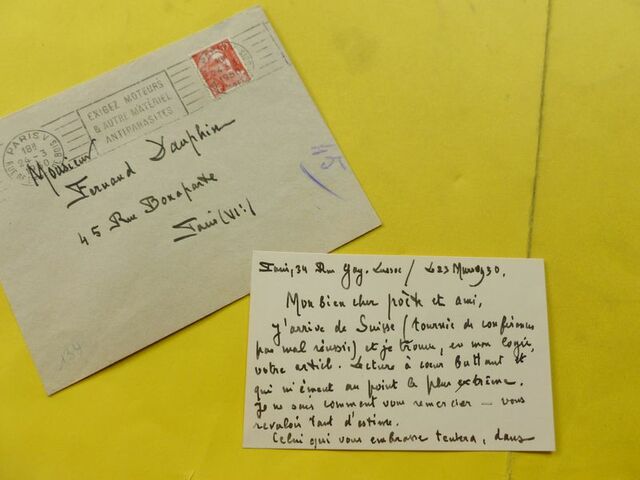 PARIS V
18H
24-3
EXIGEZ MOTEURS
& AUTRE MATÉRIEL
ANTIPARASITÉS
Monsieur
Fernand Dauphin
45 Rue Bonaparte
Paris (VIe)
134
Paris, 34 Rue Gay-Lussac / Le 23 Mars 50.
Mon bien cher poète et ami,
J'arrive de Suisse (tournée de conférences
pas mal réussie) et je trouve, en mon logis,
votre article. Lecture à cœur battant et
qui m'émeut au point le plus extrême.
Je ne sais comment vous remercier — vous
revaloir tant d'estime.
Celui qui vous embrasse tentera, dans